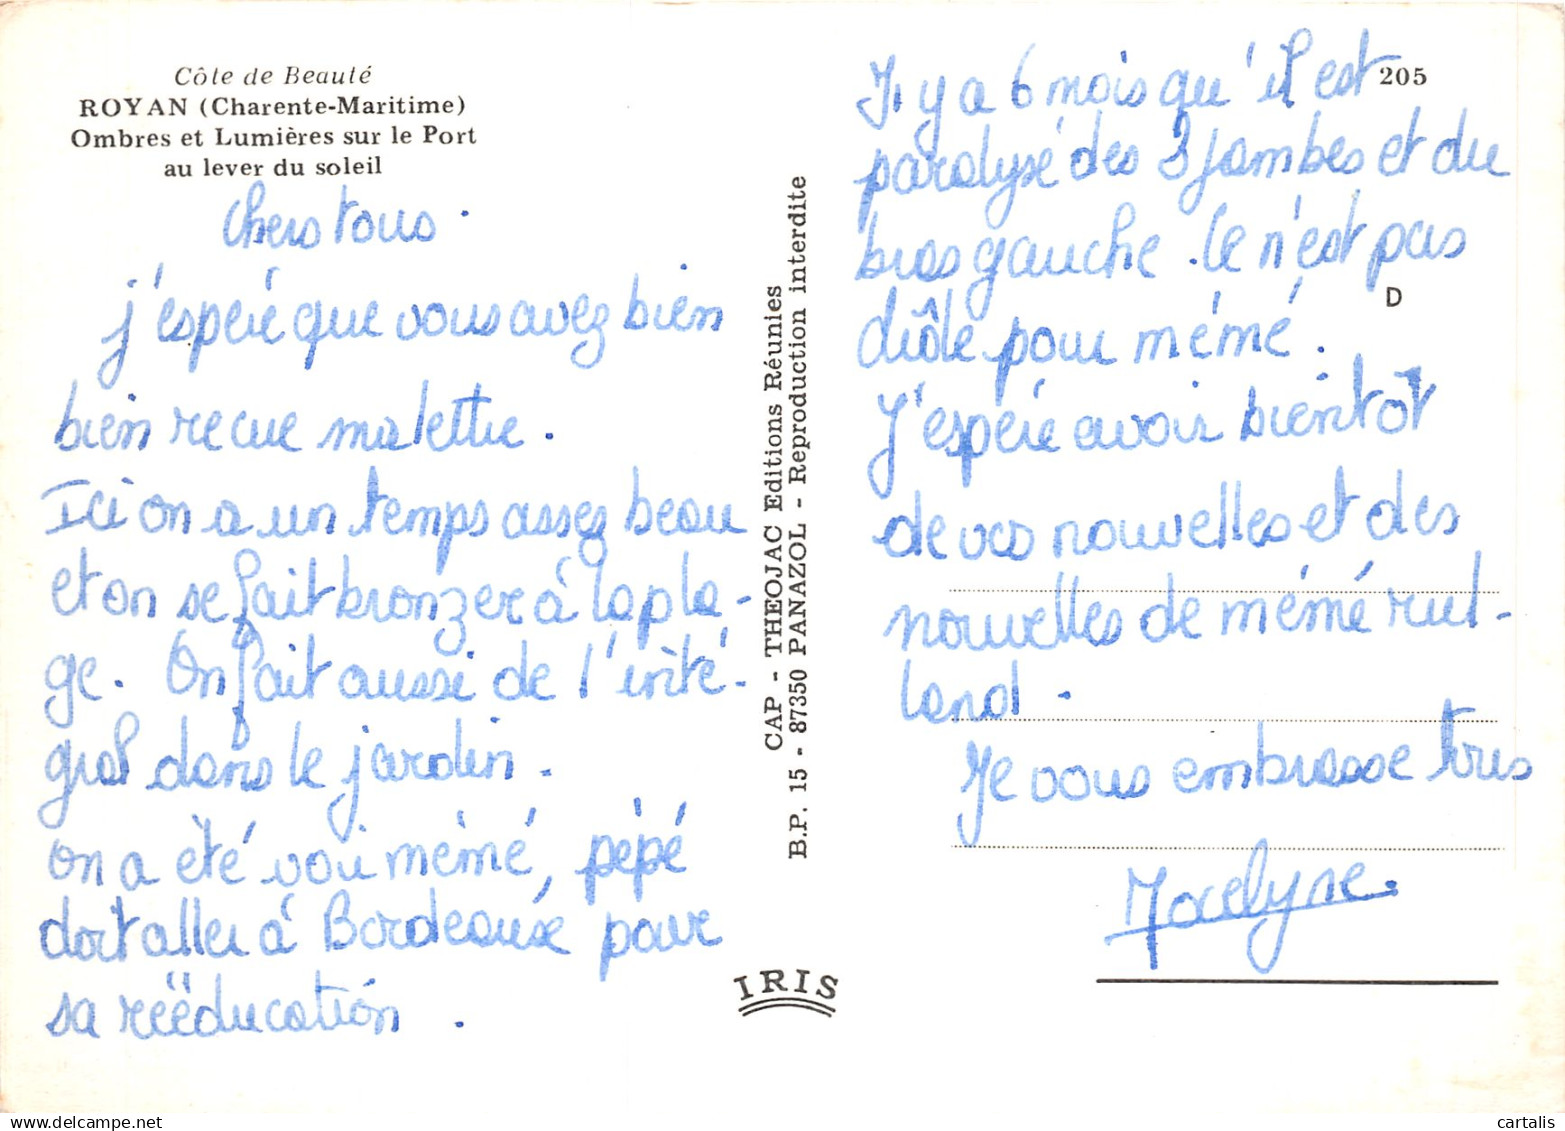 Côte de Beauté
ROYAN (Charente-Maritime)
Ombres et Lumières sur le Port
au lever du soleil
Chers tous.
j'espère que vous avez bien
bien recue ma lettre.
Ici on a un temps assez beau
et on se fait bronzer à la pla-
ge. On fait aussi de l'inté-
gral dans le jardin.
on a été voir mémé, pépé
doit aller à Bordeaux pour
sa rééducation.
CAP - THEOJAC Editions Réunies
B.P. 15 - 87350 PANAZOL - Reproduction interdite
IRIS
205
Il y a 6 mois qu'il est
paralysé des 2 jambes et du
bras gauche. Ce n'est pas
drôle pour mémé.
D
J'espère avoir bientot
de vos nouvelles et des
nouvelles de mémé rul-
land.
Je vous embrasse tous
Jocelyne.
cartalis
www.delcampe.net